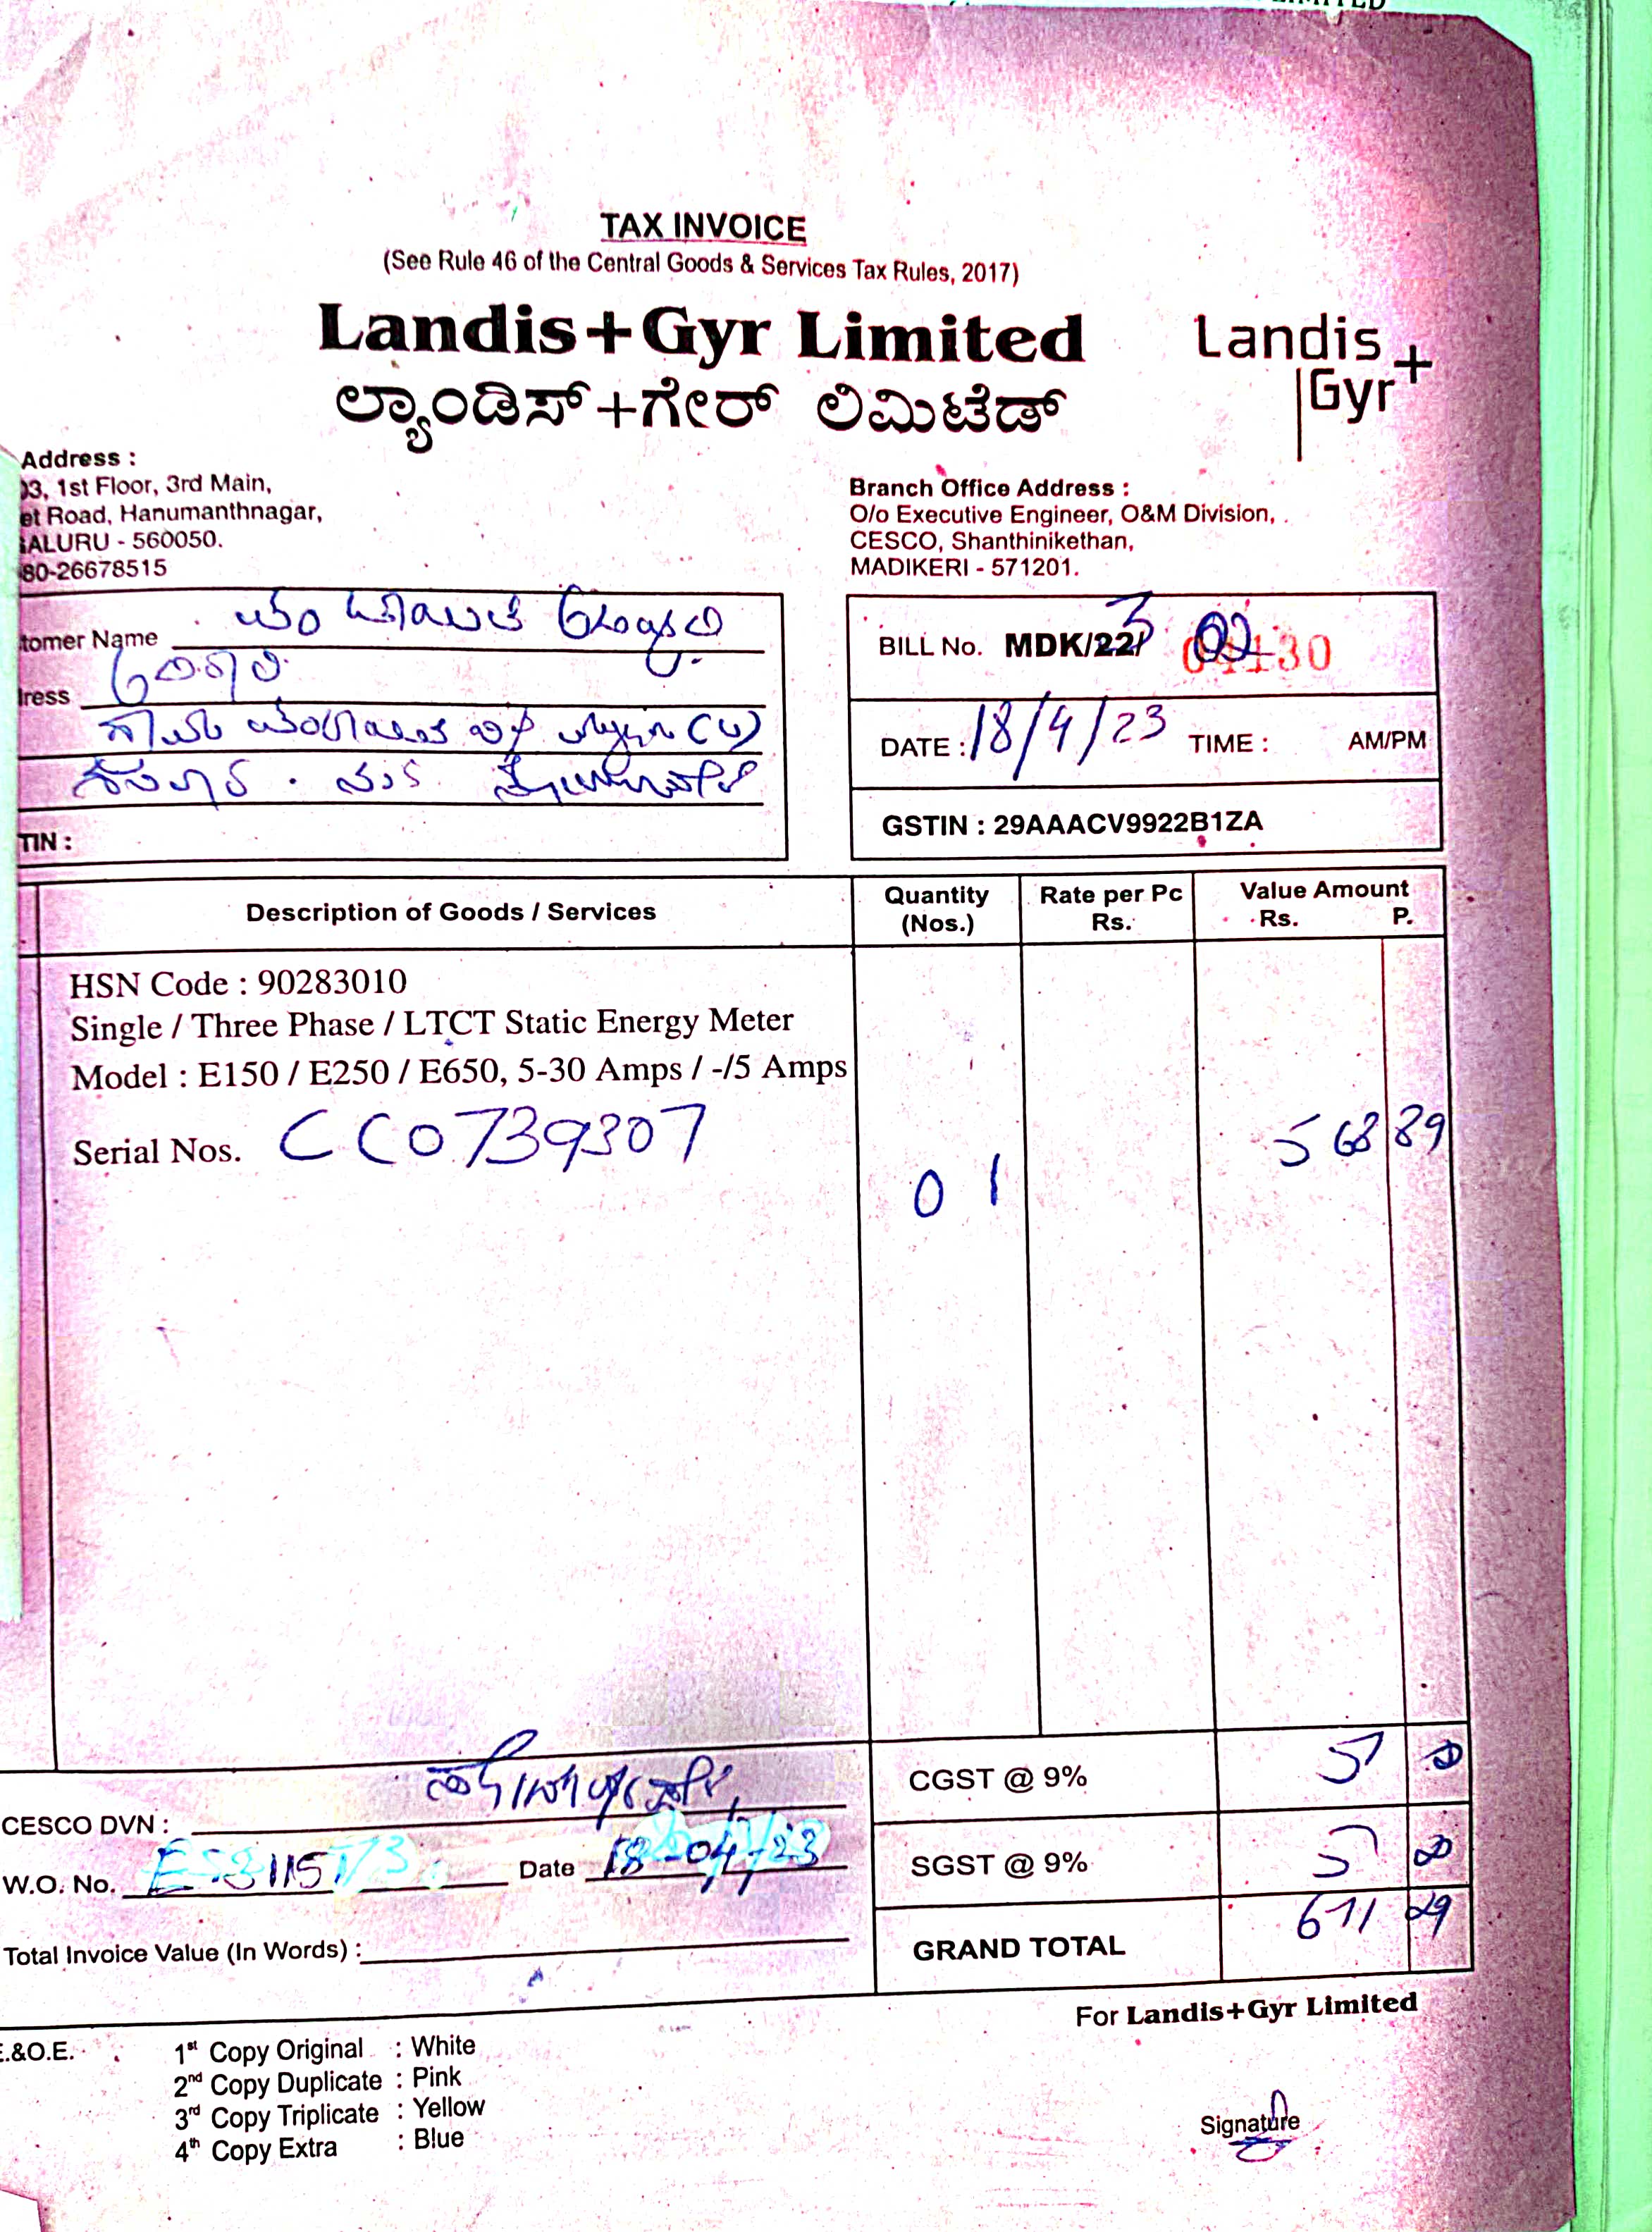 TAX INVOICE
(See Rule 46 of the Central Goods & Services Tax Rules, 2017)
Landis+Gyr Limited
Landis+
Gyr
ಲ್ಯಾಂಡಿಸ್+ಗೇರ್ ಲಿಮಿಟೆಡ್
Address :
03, 1st Floor, 3rd Main,
et Road, Hanumanthnagar,
ALURU - 560050.
80-26678515
Branch Office Address :
O/o Executive Engineer, O&M Division,
CESCO, Shanthinikethan,
MADIKERI - 571201.
tomer Name
ress
TIN :
BILL No. MDK/22/
DATE : 18/4/23 TIME : AM/PM
GSTIN : 29AAACV9922B1ZA
Description of Goods / Services
Quantity
(Nos.)
Rate per Pc
Rs.
Value Amount
Rs. P.
HSN Code : 90283010
Single / Three Phase / LTCT Static Energy Meter
Model : E150 / E250 / E650, 5-30 Amps / -/5 Amps
Serial Nos. CC0739307
01
568 89
CGST @ 9% 51
SGST @ 9% 51
GRAND TOTAL 671 29
CESCO DVN :
W.O. No. Date 18-04/23
Total Invoice Value (In Words) :
For Landis+Gyr Limited
E.&O.E.
1st Copy Original : White
2nd Copy Duplicate : Pink
3rd Copy Triplicate : Yellow
4th Copy Extra : Blue
Signature